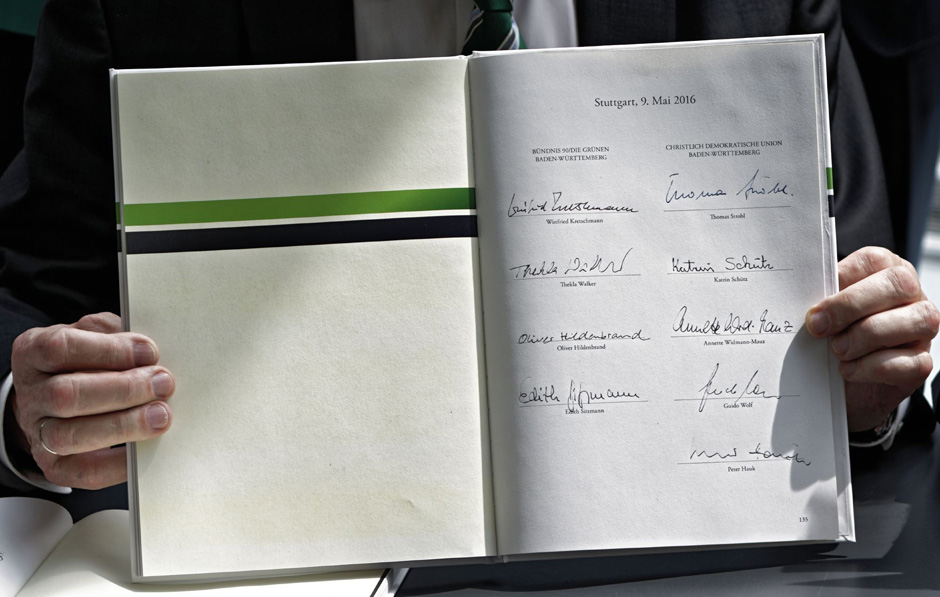 Stuttgart, 9. Mai 2016
BÜNDNIS 90/DIE GRÜNEN
BADEN-WÜRTTEMBERG
CHRISTLICH DEMOKRATISCHE UNION
BADEN-WÜRTTEMBERG
Winfried Kretschmann
Winfried Kretschmann
Thomas Strobl
Thomas Strobl
Thekla Walker
Thekla Walker
Katrin Schütz
Katrin Schütz
Oliver Hildenbrand
Oliver Hildenbrand
Annette Widmann-Mauz
Edith Sitzmann
Edith Sitzmann
Guido Wolf
Peter Hauk
135